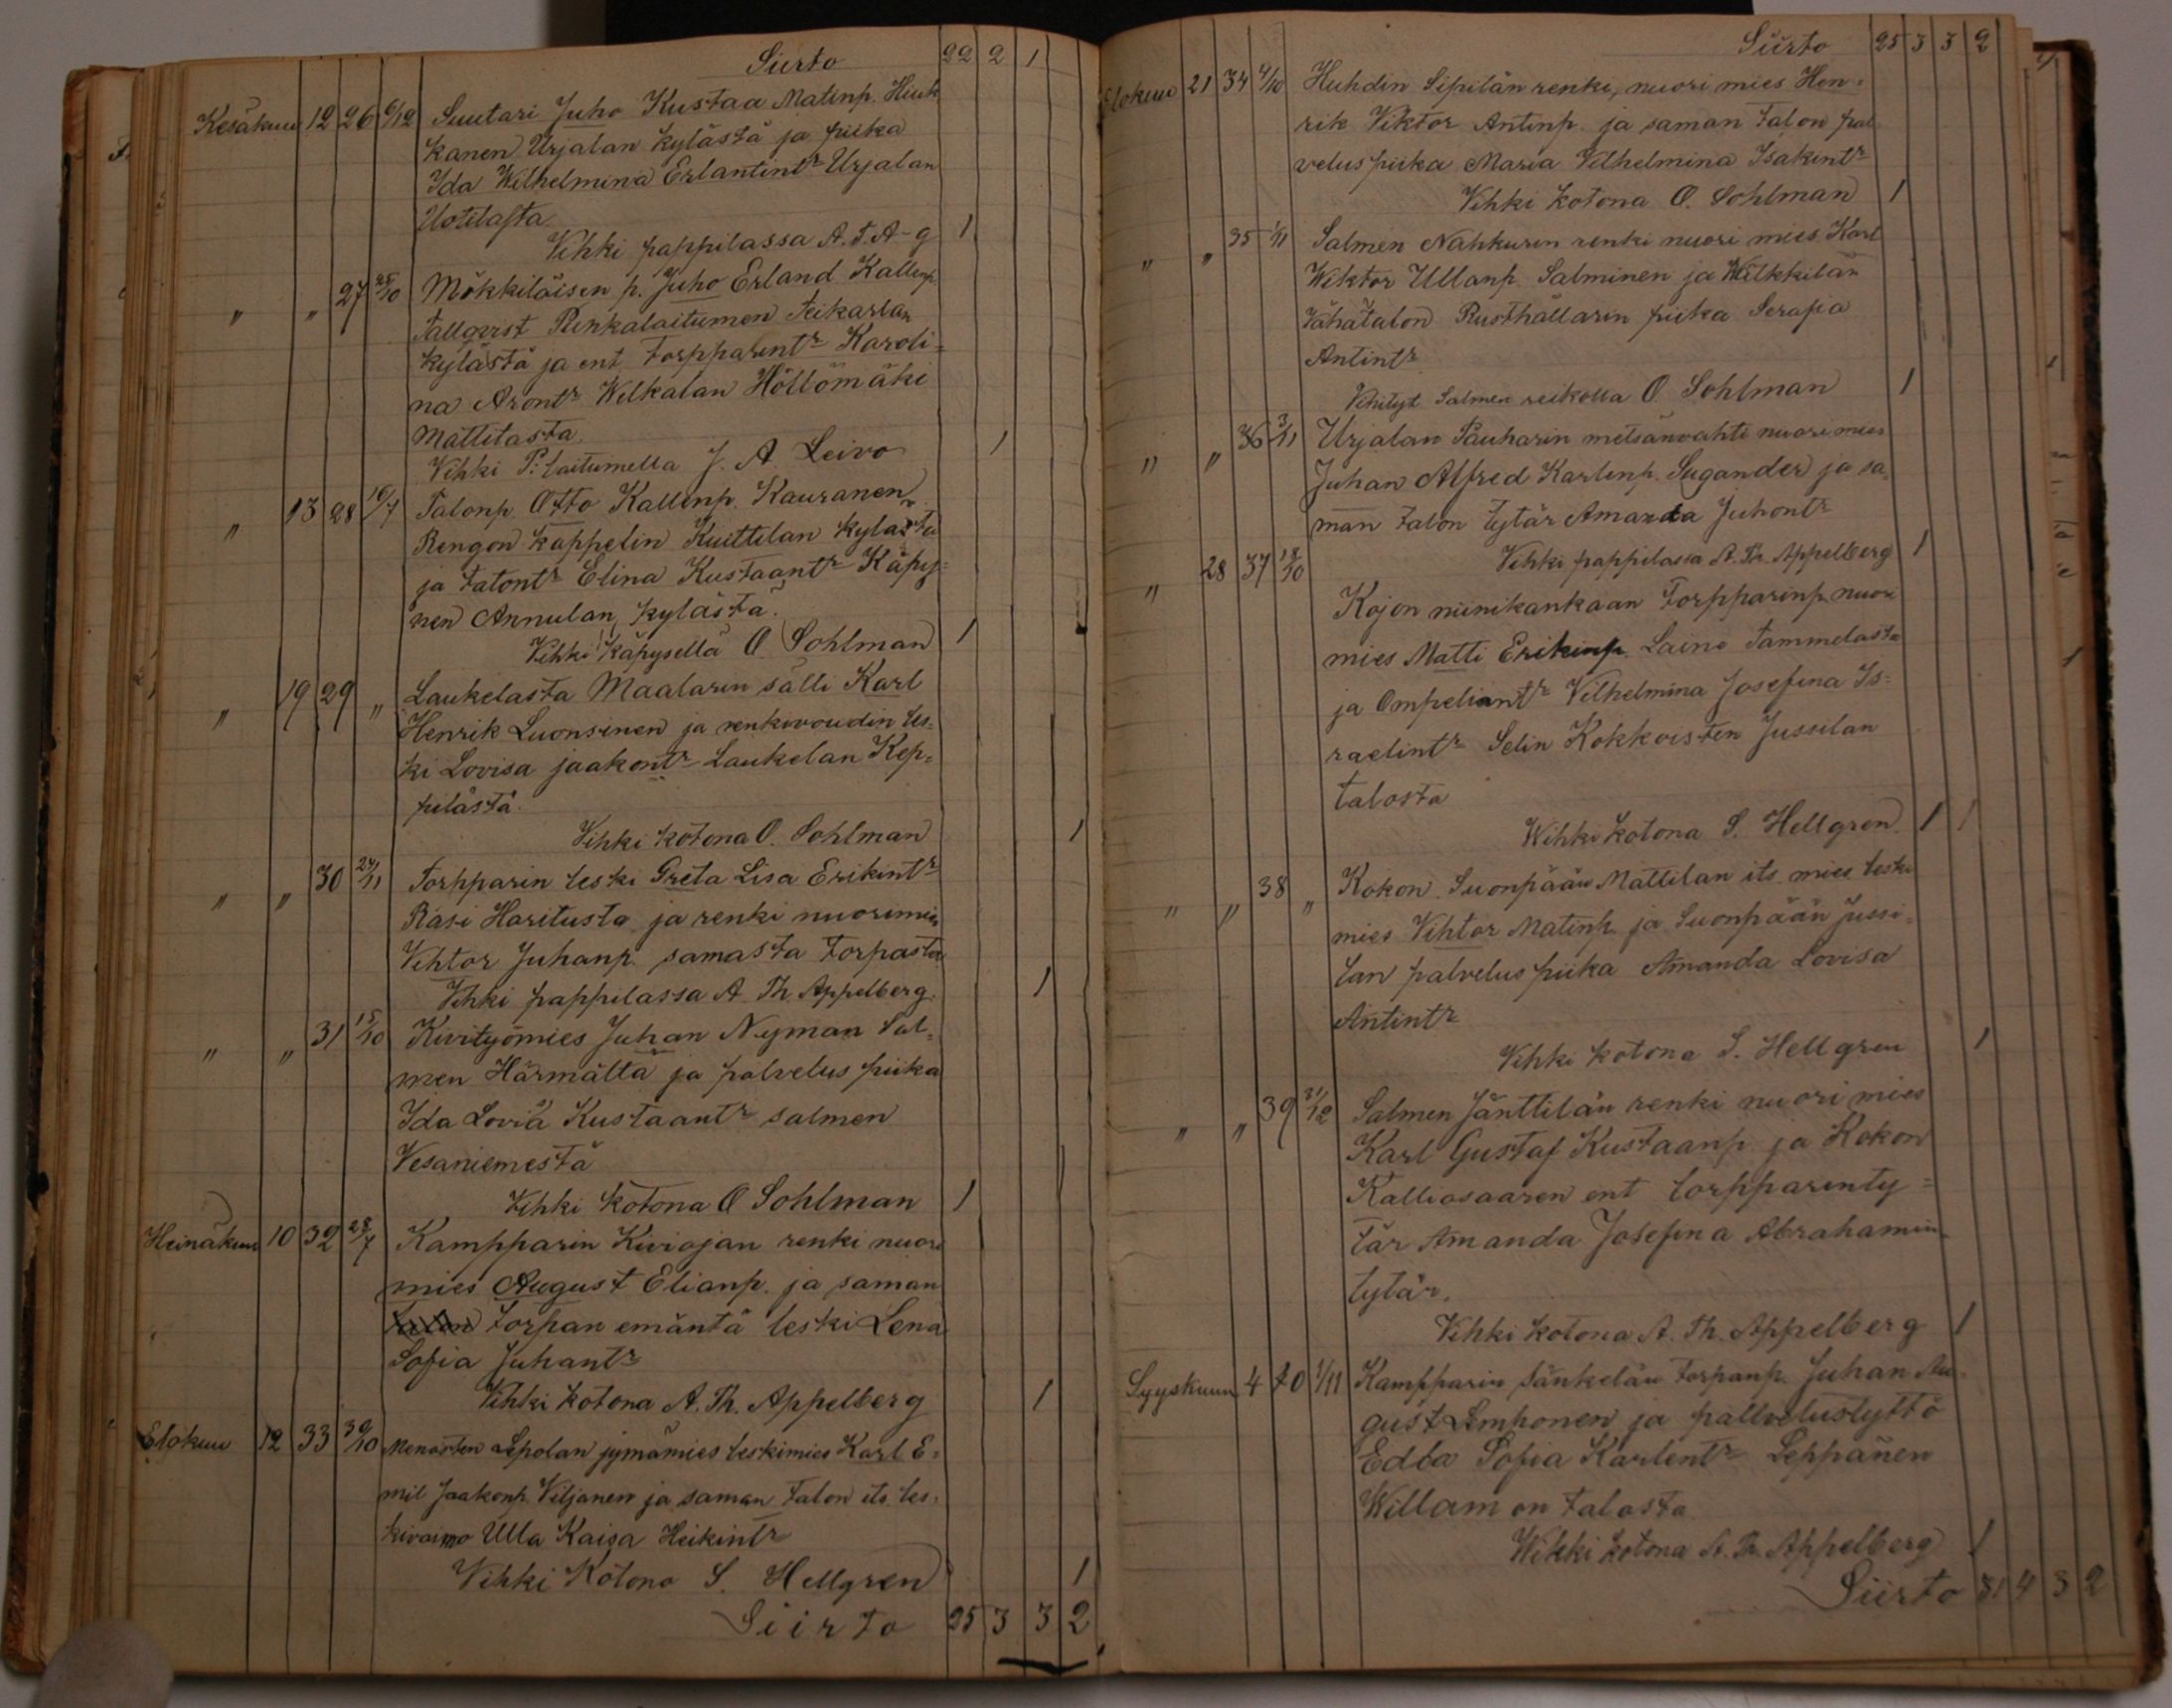 Siirto 22 2 1
Kesäkuu 12 26 6/12 Suutari Juho Kustaa Matinp. Hiuk
kanen Urjalan kylästä ja piika
Ida Wilhelmina Erlantintr Urjalan
Uotilasta
Vihki pappilassa A. T. A-g 1
" " 27 25/10 Mökkiläisen p. Juho Erland Kallenp
Tallqvist Punkalaitumen Teikarlan
kylästä ja ent torpparintr Karoli=
na Arontr Welkalan Höllömäki
Mattilasta.
Vihki P: laitumella J. A. Leivo 1
" 13 28 16/7 Talonp. Otto Kallenp. Kauranen
Rengon kappelin Kuittilan kylastä
ja talontr Elina Kustaantr Käpy=
nen Annulan kylästä.
Vihki Käpysellä O Sohlman 1
" 19 29 " Laukelasta Maalarin sälli Karl
Henrik Luonsinen ja renkivoudin les=
ki Lovisa jaakontr Laukelan Kep=
pilästä.
Vihki kotona O. Sohlman 1
" " 30 24/11 Torpparin leski Greta Lisa Erikintr
Räsi Haritusta ja renki nuorimies
Vihtor Juhanp. samasta torpasta
Vihki pappilassa A. Th. Appelberg. 1
" " 31 15/10 Kivityömies Juhan Nyman Sal=
men Härmältä ja palvelus piika
Ida Lovia Kustaantr salmen
Vesaniemestä
Vihki kotona O Sohlman 1
Heinäkuu 10 32 28/7 Kampparin Kiviojan renki nuori
mies August Elianp. ja saman
torpan emäntä leski Lena
Sofia Juhantr
Vihki kotona A. Th. Appelberg 1
Elokuu 12 33 30/10 Menösten Lepolan jymämies leskimies Karl E=
mil Jaakonp. Viljanen ja saman talon its. les=
kivaimo Ulla Kaisa Heikintr
Vihki Kotona S. Hellgren 1
Siirto 25 3 3 2
Siirto 25 3 3 2
Elokuu 21 34 4/10 Huhdin Sipilän renki, nuori mies Hen=
rik Viktor Antinp. ja saman talon pal
velus piika Maria Vilhelmina Isakintr
Vihki kotona O. Sohlman 1
" " 35 1/11 Salmen Nahkurin renki nuori mies Karl
Wiktor Ullanp. Salminen ja Wälkkilän
Vähätalon Rusthällarin piika Serafia
Antintr
Vihityt Salmen seikolla O. Sohlman 1
" " 36 3/11 Urjalan Pauharin metsänvahti nuori mies
Juhan Alfred Karlinp. Sugander ja sa
man talon tytär Amanda Juhontr
Vihki pappilassa A. Th. Appelberg 1
" 28 37 18/10 Kojon niinikankaan Torpparinp. nuori
mies Matti Erikinp. Laine Tammelasta
ja Ompeliantr Vilhelmina Josefina Is=
raelintr Selin Kokkoisten Jussilan
talosta
Wihki kotona S. Hellgren. 1
" " 38 " Kokon Suonpään Mattilan its. mies leski
mies Vihtor Matinp. ja Suonpään Jussi=
lan palvelus piika Amanda Lovisa
Antintr
Vihki kotona S. Hellgren 1
" " 39 31/12 Salmen Jänttilän renki nuori mies
Karl Gustaf Kustaanp. ja Kokon
Kalliosaaren ent torpparinty=
tär Amanda Josefina Abrahamin
tytär.
Vihki kotona A. Th. Appelberg 1
Syyskuun 4 40 1/11 Kampparin Sänkelän torpanp. Juhan Au=
gust Lemponen ja pallvelustyttö
Edla Sofia Karlentr Leppänen
Willamon talosta
Wihki kotona A. Th. Appelberg 1
Siirto 31 4 3 2